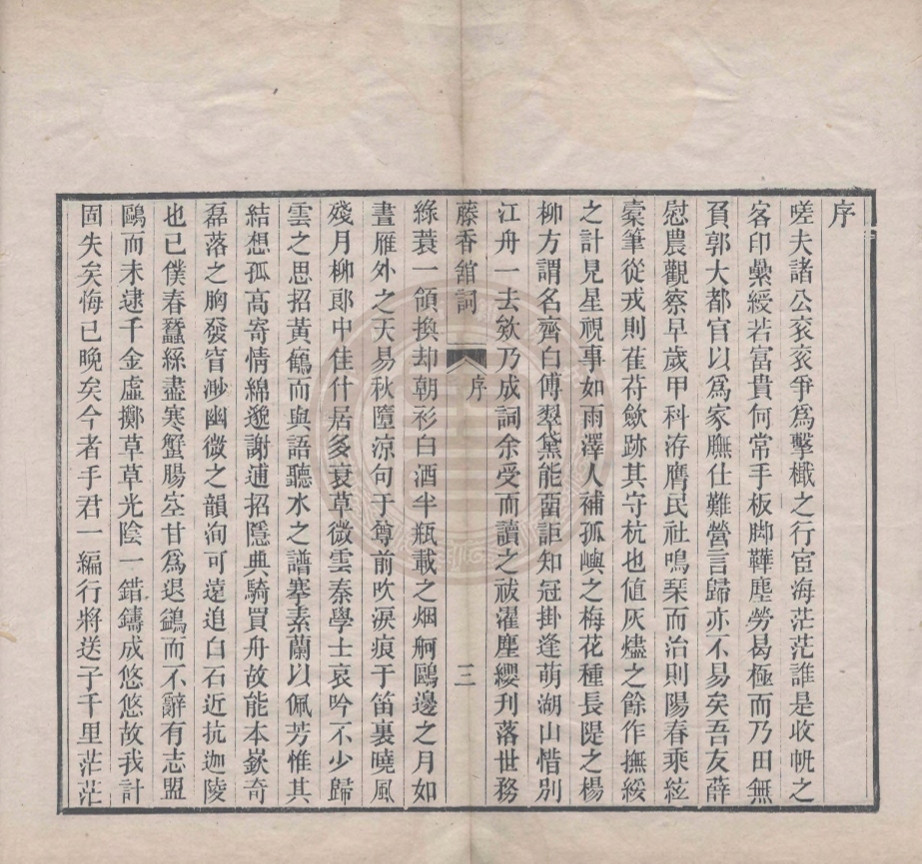 序
嗟夫諸公袞袞爭爲擊檝之行宦海茫茫誰是收帆之
客印纍綬若富貴何常手板脚鞾塵勞曷極而乃田無
負郭大都官以爲家膴仕難營言歸亦不易矣吾友薛
慰農觀察早歲甲科洊膺民社鳴琹而治則陽春乘絃
橐筆從戎則萑苻歛跡其守杭也値灰燼之餘作撫綏
之計見星視事如雨澤人補孤嶼之梅花種長隄之楊
柳方謂名齊白傅翠黛能畱詎知冠掛逢萌湖山惜別
江舟一去欸乃成詞余受而讀之祓濯塵纓刋落世務
藤香館詞
序
三
綠蓑一領換却朝衫白酒半瓶載之烟舸鷗邊之月如
晝雁外之天易秋墮涼句于尊前吹淚痕于笛裏曉風
殘月柳郞中佳什居多衰草微雲秦學士哀吟不少歸
雲之思招黃鶴而與語聽水之譜搴素蘭以佩芳惟其
結想孤高寄情綿邈謝逋招隱典騎買舟故能本嶔奇
磊落之胸發窅渺幽微之韻洵可遠追白石近抗迦陵
也已僕春蠶絲盡寒蟹腸空甘爲退鷁而不辭有志盟
鷗而未逮千金虛擲草草光陰一錯鑄成悠悠故我計
固失矣悔已晚矣今者手君一編行將送子千里茫茫